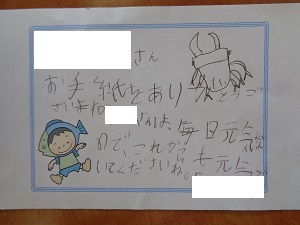 さん
お手紙をありがとうご
ざいまね さんは、毎日元気な
ので、これからも元気で
いてくださいね。